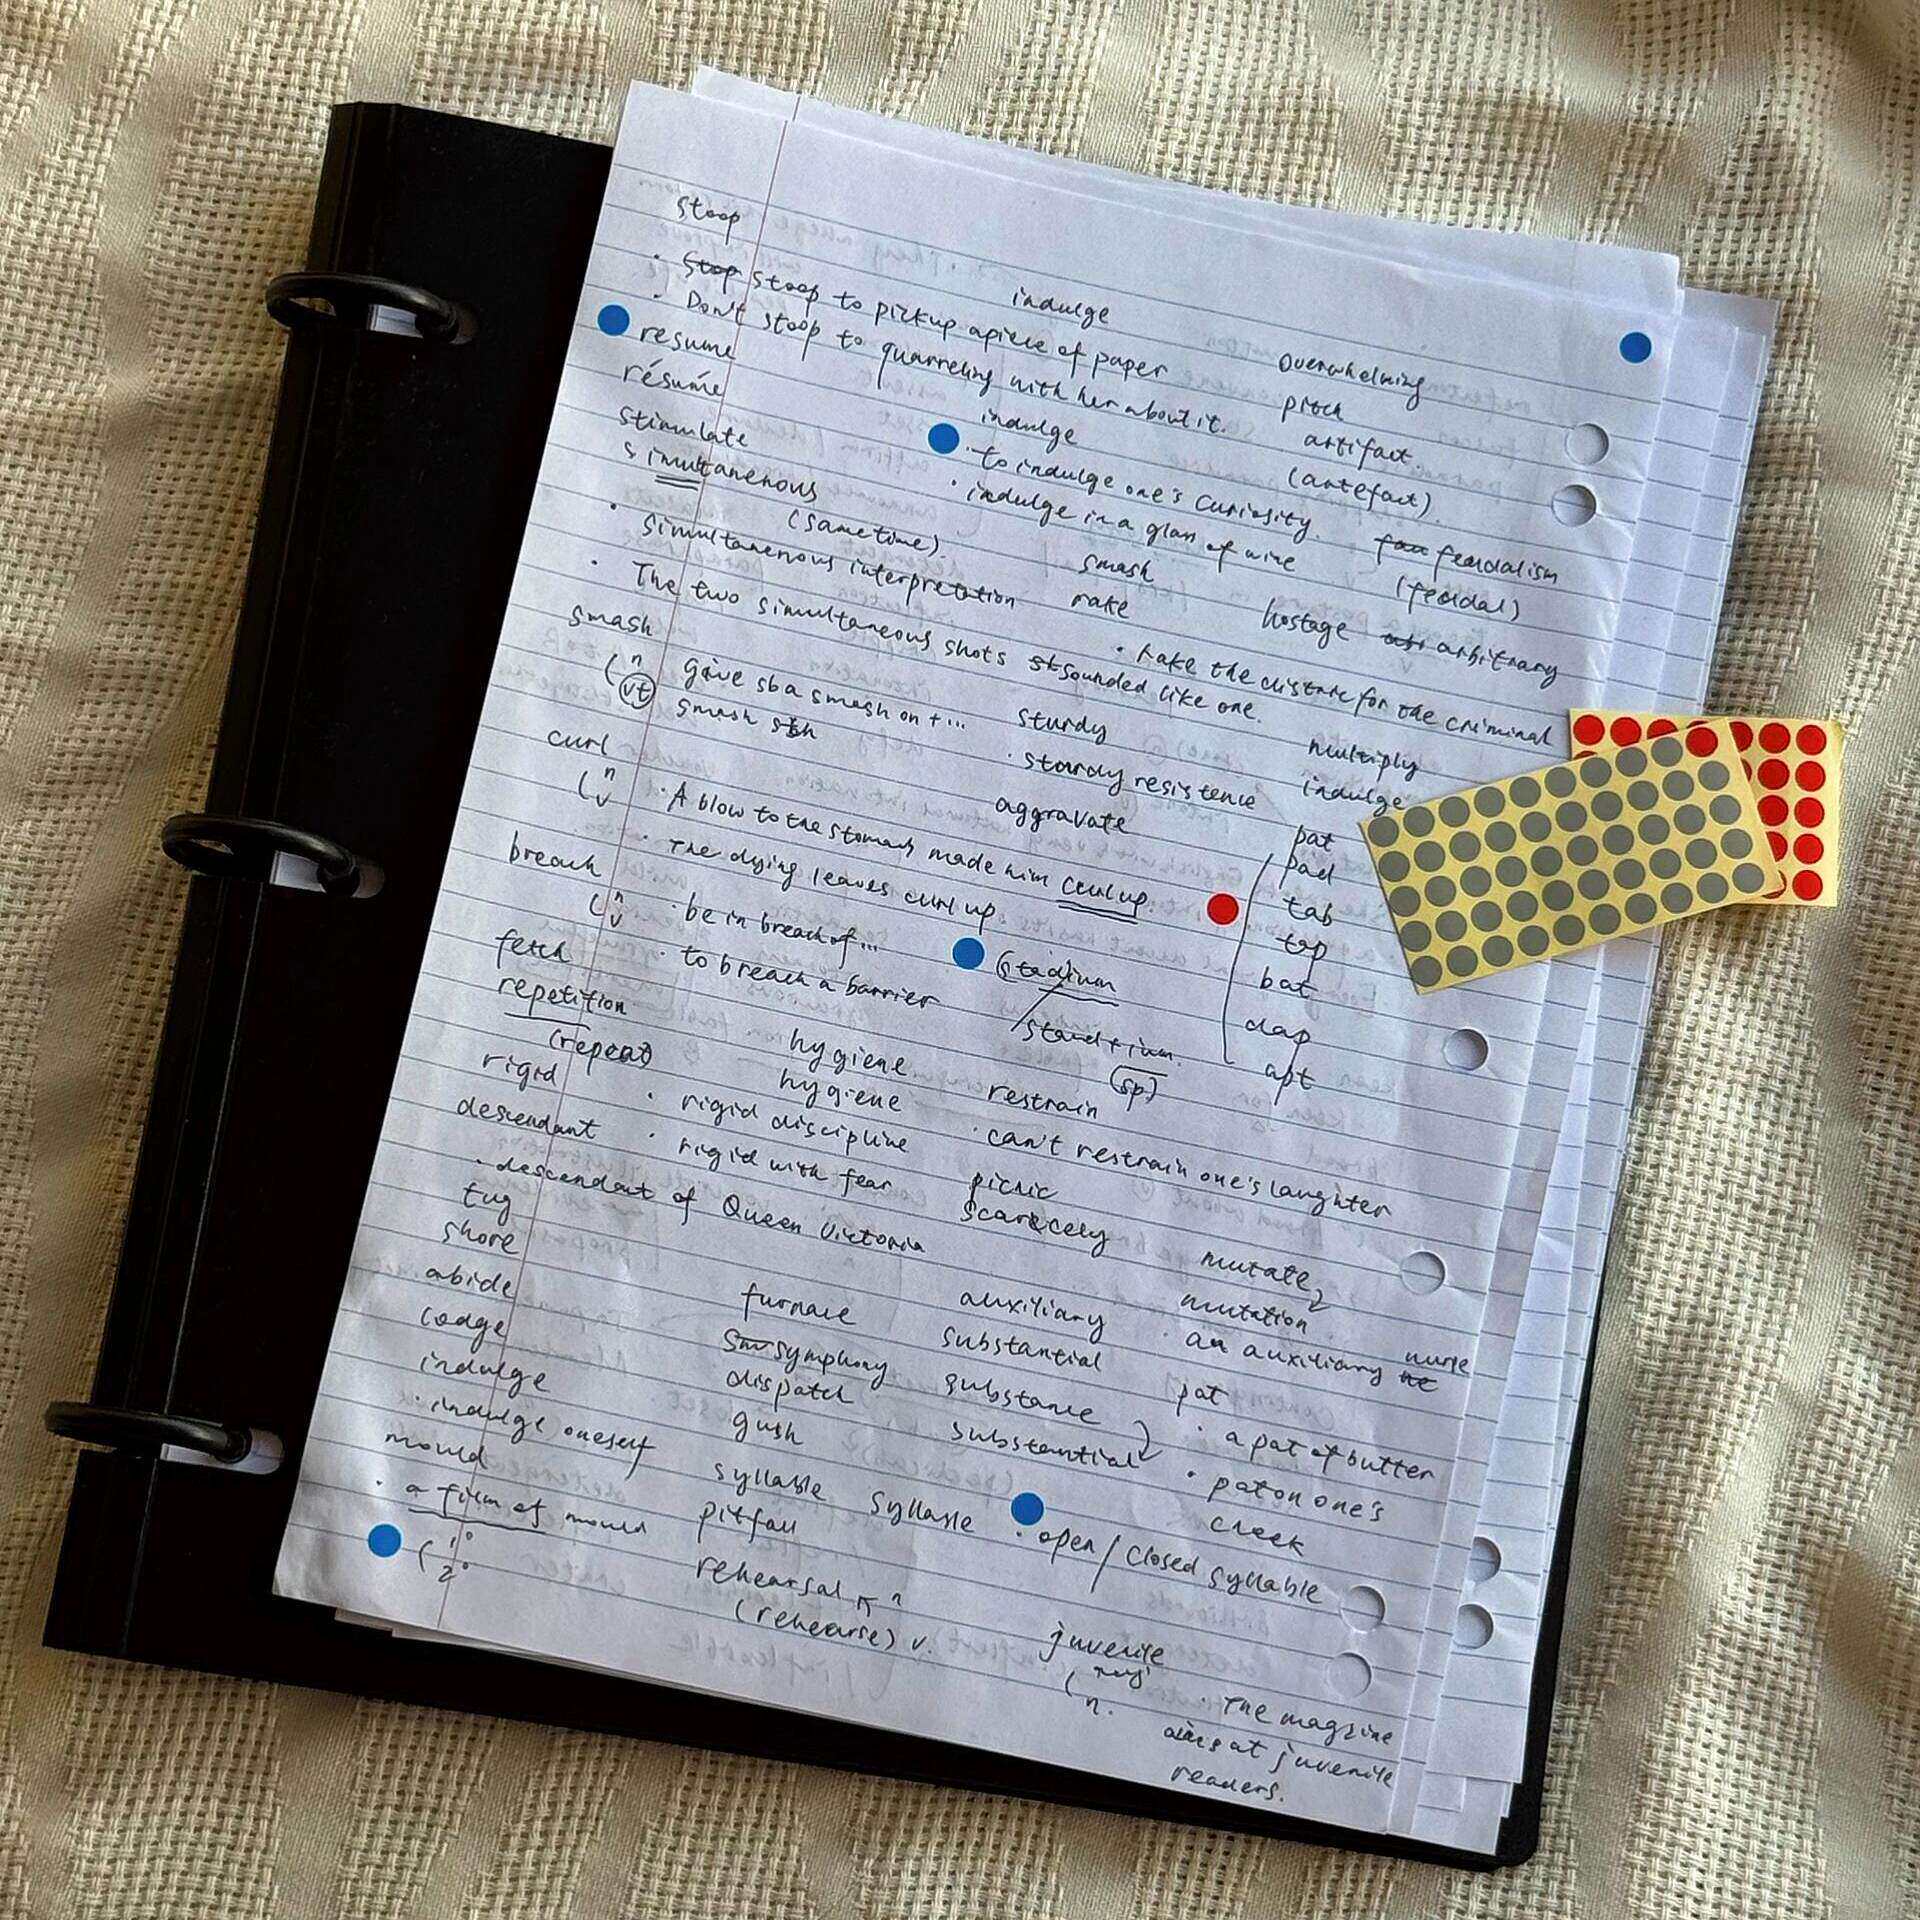 stoop
· Stop stoop to pickup apiece of paper
· Don't stoop to quarreling with her about it.
resume
résumé
stimulate
simultanenous
(same time).
· simultanenous interpretation
· The two simultaneous shots st sounded like one.
smash
n give sb a smash on t...
vt smash sth
curl
n
v
· A blow to the stomach made him curl up.
· The dying leaves curl up
breach
n · be in breach of...
v · to breach a barrier
fetch
repetition
(repeat)
rigid
· rigid discipline
· rigid with fear
descendant
· descendant of Queen Victoria
tug
shore
abide
lodge
indulge
· indulge oneself
mould
· a film of mould
1°
2°
indulge
indulge
· to indulge one's curiosity.
· indulge in a glass of wine
smash
rake
· rake the district for the criminal
sturdy
· sturdy resistence
aggravate
stadium
stand + ium
(sp)
hygiene
hygiene
restrain
· can't restrain one's laughter
picnic
scarecely
furnace
symphony
dispatch
gush
syllable syllable
· open / closed syllable
pitfall
rehearsal n
(rehearse) v.
auxiliary
· an auxiliary nurse
substantial
substance
substantial
juvenile
n.
· The magzine
aims at juvenile
readers.
overwhelming
pitch
artifact
(artefact).
feudalism
(feudal)
hostage
arbitrary
multiply
indulge
pat
pad
tab
tap
bat
dap
apt
mutate
mutation
pat
· a pat of butter
· pat on one's
cheek